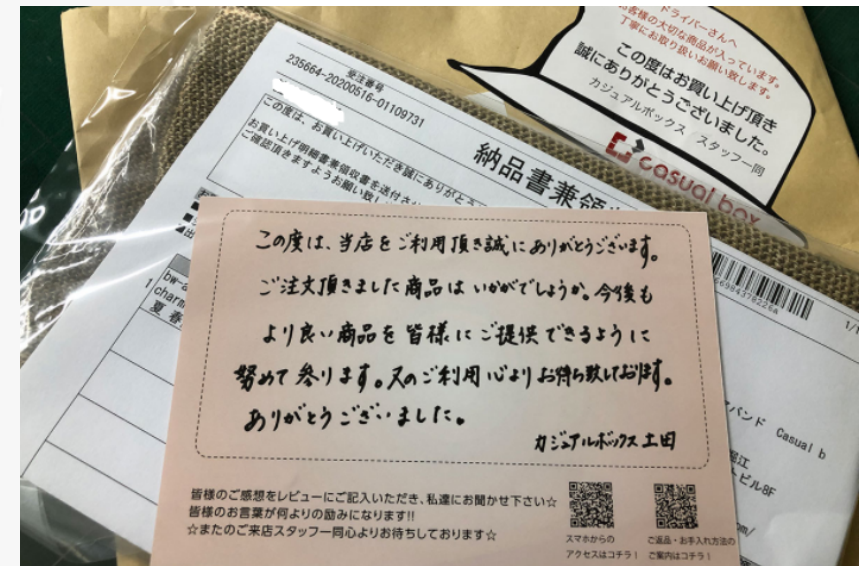 ドライバーさんへ
お客様の大切な商品が入っています。
丁寧にお取り扱いお願い致します。
この度はお買い上げ頂き
誠にありがとうございました。
カジュアルボックス スタッフ一同
casual box
受注番号
235664-20200516-01109731
この度は、お買い上げいただき誠にありがとう
お買い上げ明細書兼領収書を送付さ
ご確認頂きますようお願い致し
納品書兼領
bw-
charm
夏 春
1/1
バンド Casual b
堀江
ビル8F
この度は、当店をご利用頂き誠にありがとうございます。
ご注文頂きました商品はいかがでしょうか。今後も
より良い商品を皆様にご提供できるように
努めて参ります。又のご利用心よりお待ち致しております。
ありがとうございました。
カジュアルボックス 土田
皆様のご感想をレビューにご記入いただき、私達にお聞かせ下さい☆
皆様のお言葉が何よりの励みになります!!
☆またのご来店スタッフ一同心よりお待ちしております☆
スマホからの
アクセスはコチラ！
ご返品・お手入れ方法の
ご案内はコチラ！